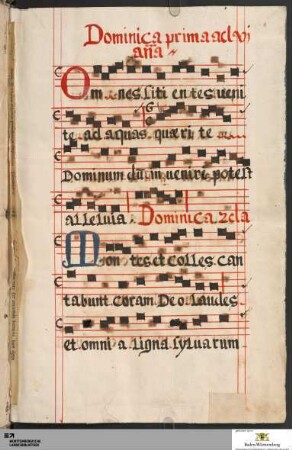 Dominica prima ad vi
aña
Om nes siti en tes veni
te ad aquas quæri te
Dominum dū in veniri potest
al le luia Dominica 2 cla
Mon tes et colles can
tabunt coram Deo Laudes
et omni a ligna syluarum
Baden-Württemberg